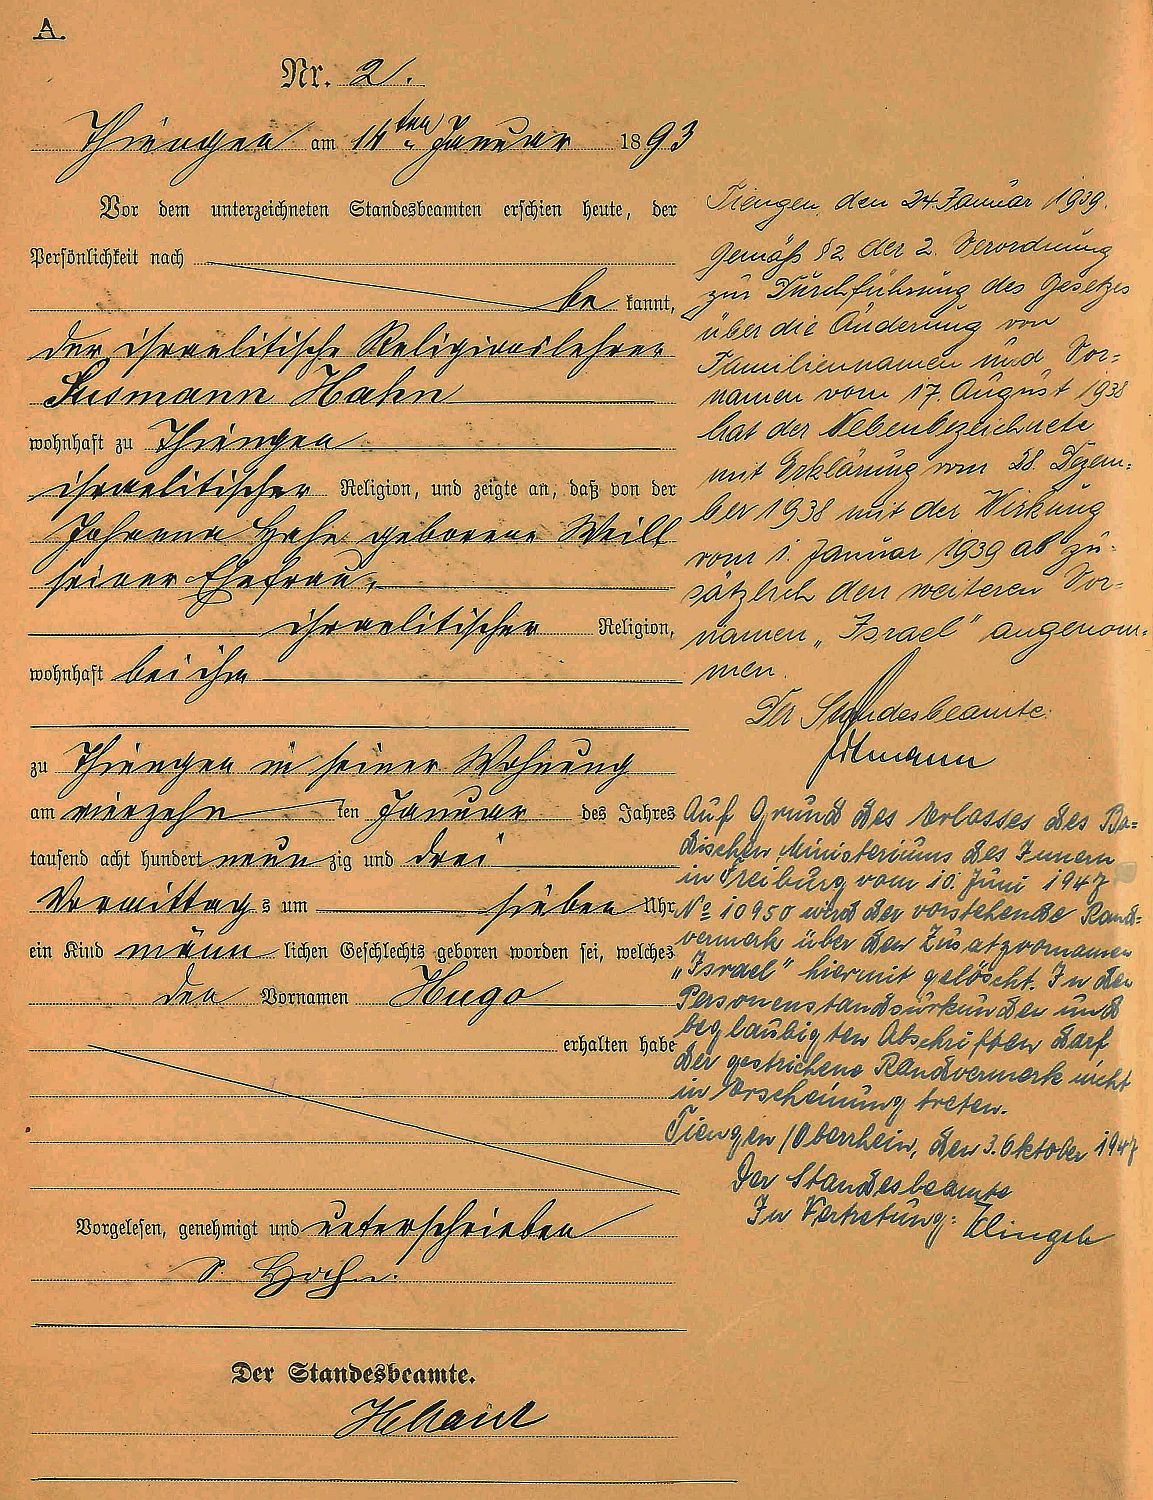 A.
Nr. 2.
Thiengen am 14ten Januar 1893
Vor dem unterzeichneten Standesbeamten erschien heute, der
Persönlichkeit nach
be kannt,
der israelitische Religionslehrer
Susmann Hahn
wohnhaft zu Thiengen
israelitischer Religion, und zeigte an, daß von der
Johanna Hahn geborene Weill
seiner Ehefrau,
israelitischer Religion,
wohnhaft bei ihm
zu Thiengen in seiner Wohnung
am vierzehn ten Januar des Jahres
tausend acht hundert neun zig und drei
Vormittag s um sieben Uhr
ein Kind männ lichen Geschlechts geboren worden sei, welches
den Vornamen Hugo
erhalten habe
Vorgelesen, genehmigt und unterschrieben
S. Hahn.
Der Standesbeamte.
Tiengen, den 24. Januar 1939.
Gemäß § 2 der 2. Verordnung
zur Durchführung des Gesetzes
über die Änderung von
Familiennamen und Vor-
namen vom 17. August 1938
hat der Nebenbezeichnete
mit Erklärung vom 28. Dezem-
ber 1938 mit der Wirkung
vom 1. Januar 1939 ab zu-
sätzlich den weiteren Vor-
namen „Israel" angenom-
men.
Der Standesbeamte:
Auf Grund des Erlasses des Ba-
dischen Ministeriums des Innern
in Freiburg vom 10. Juni 1947
No 10950 wird der vorstehende Rand-
vermerk über den Zusatzvornamen
„Israel" hiermit gelöscht. In den
Personenstandsurkunden und
beglaubigten Abschriften darf
der gestrichene Randvermerk nicht
in Erscheinung treten.
Tiengen/Oberrhein, den 3. Oktober 1947
Der Standesbeamte
In Vertretung: